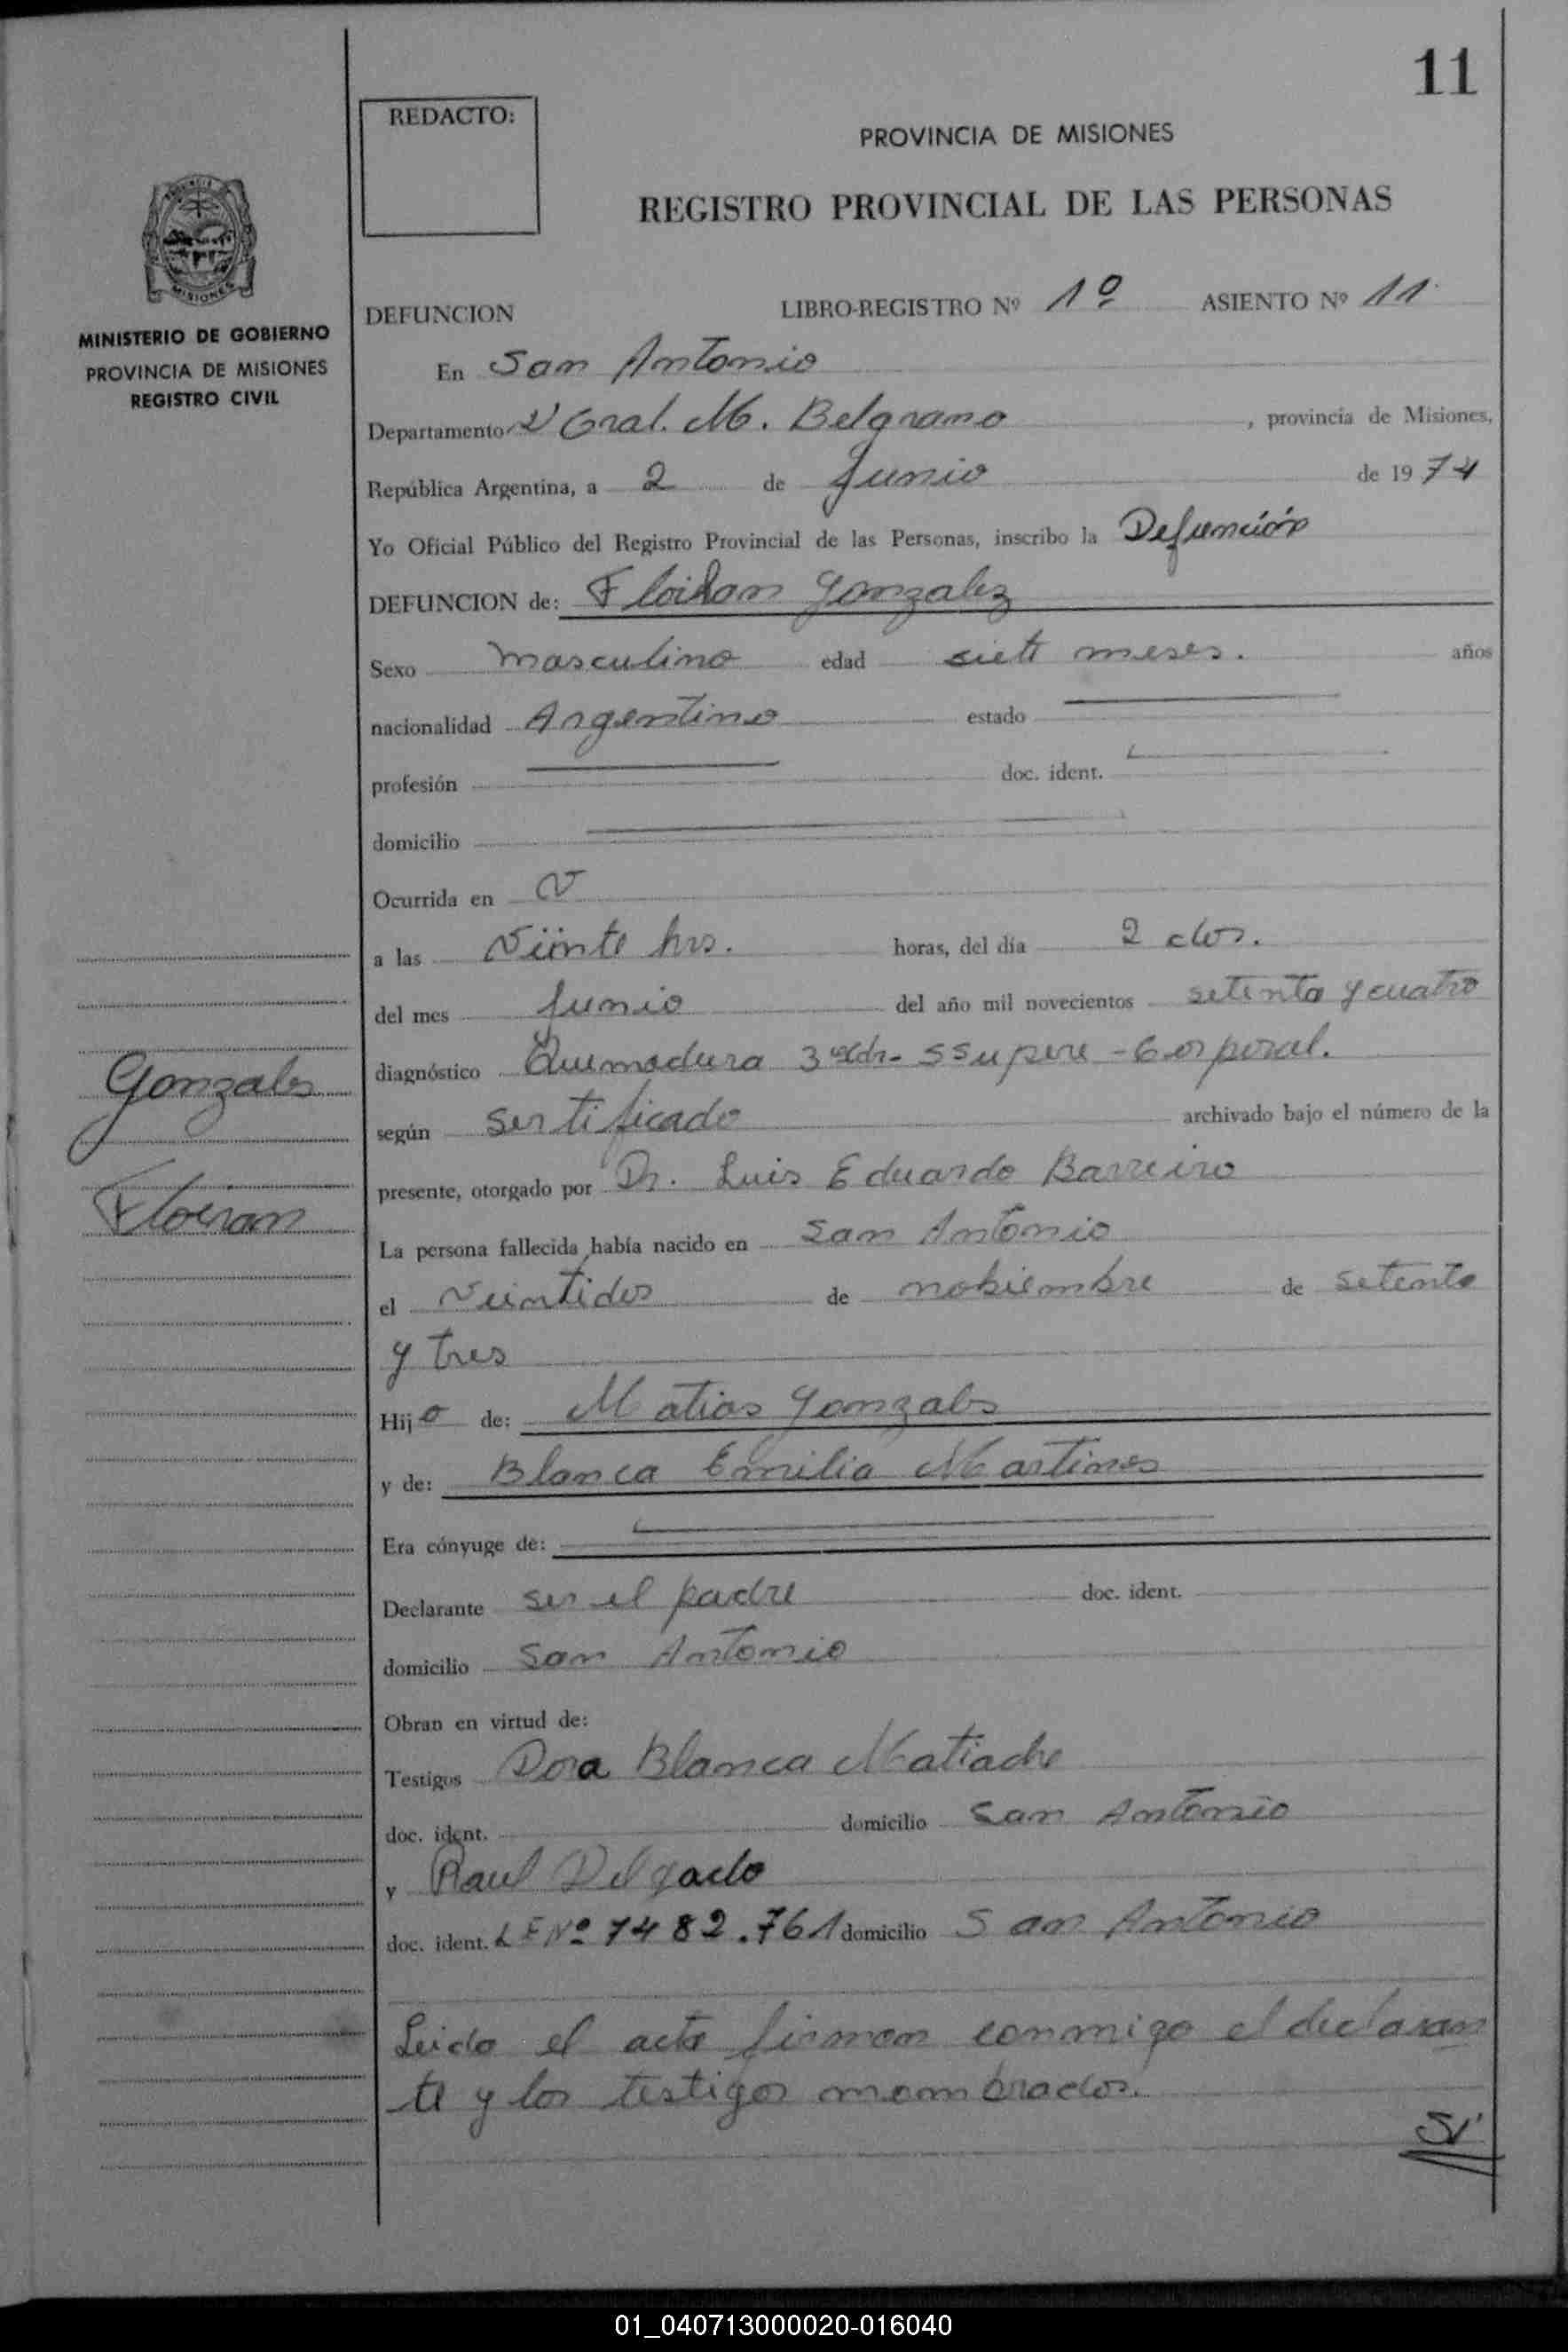 11
REDACTO:
PROVINCIA DE MISIONES
REGISTRO PROVINCIAL DE LAS PERSONAS
MISIONES
MINISTERIO DE GOBIERNO
PROVINCIA DE MISIONES
REGISTRO CIVIL
DEFUNCION LIBRO-REGISTRO Nº 1º ASIENTO Nº 11
En San Antonio
Departamento Gral. M. Belgrano , provincia de Misiones,
República Argentina, a 2 de Junio de 1974
Yo Oficial Público del Registro Provincial de las Personas, inscribo la Defunción
DEFUNCION de: Floiran Gonzalez
Sexo masculino edad siete meses. años
nacionalidad Argentino estado
profesión doc. ident.
domicilio
Ocurrida en
a las Veinte hrs. horas, del día 2 dos.
del mes Junio del año mil novecientos setenta y cuatro
diagnóstico Quemadura Corporal.
según sertificado archivado bajo el número de la
presente, otorgado por Dr. Luis Eduardo Barreiro
La persona fallecida había nacido en San Antonio
el Veintidos de nobiembre de setenta
y tres
Hijo de: Matias Gonzales
y de: Blanca Emilia Martines
Era cónyuge de:
Declarante ser el padre doc. ident.
domicilio San Antonio
Obran en virtud de:
Testigos Dora Blanca
doc. ident. domicilio San Antonio
y Raul Delgado
doc. ident. LE Nº 7482.761 domicilio San Antonio
Leido el acta firman conmigo el declaran
te y los testigos mombrados.
Gonzales
Floiran
01_040713000020-016040